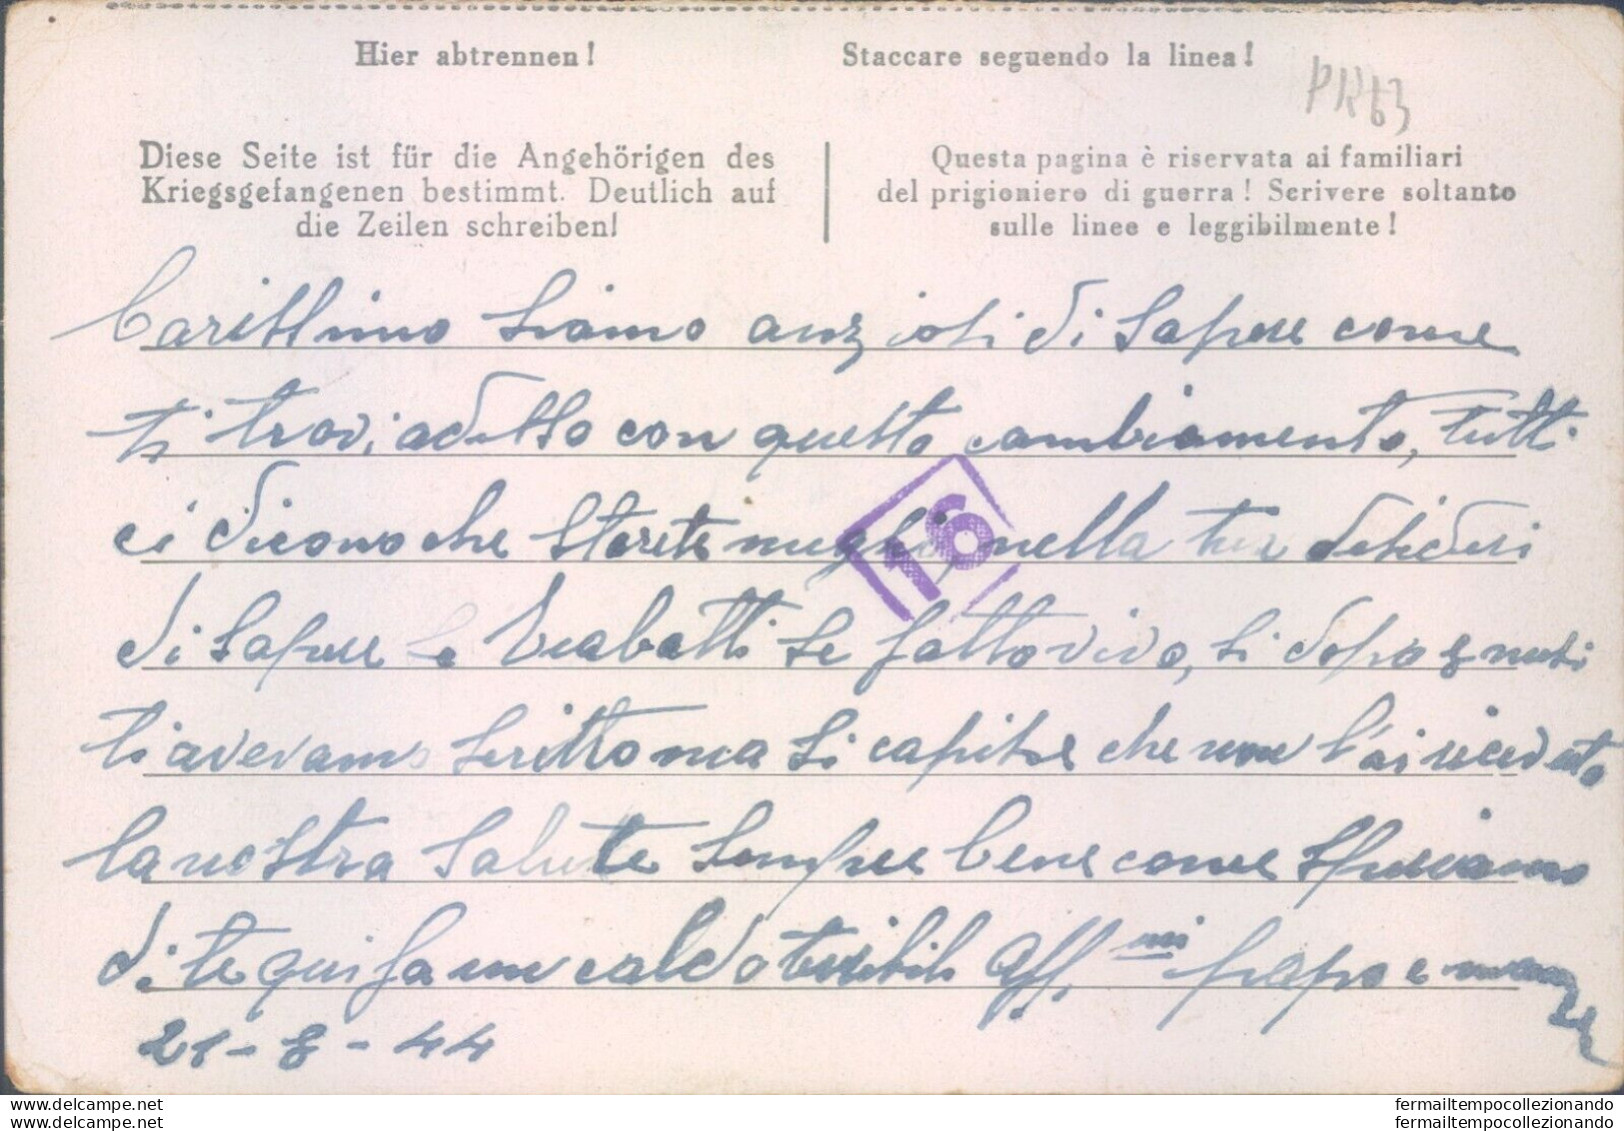 Hier abtrennen!
Staccare seguendo la linea!
PK63
Diese Seite ist für die Angehörigen des
Kriegsgefangenen bestimmt. Deutlich auf
die Zeilen schreiben!
Questa pagina è riservata ai familiari
del prigioniero di guerra! Scrivere soltanto
sulle linee e leggibilmente!
Carissimo siamo anziosi di sapere come
ti trovi adesso con questo cambiamento, tutti
ci dicono che starete meglio nella tua desideri
di sapere se se fatto vivo, si dopo 8 mesi
ti avevamo scritto ma si capisce che non l'ai ricevuto
la nostra salute sempre bene come speriamo
di te qui fa un caldo terribile aff.mi papa e mamma
16
21-8-44
fermailtempocollezionando.com
fermailtempocollezionando.com
fermailtempocollezionando
fermailtempocollezionando